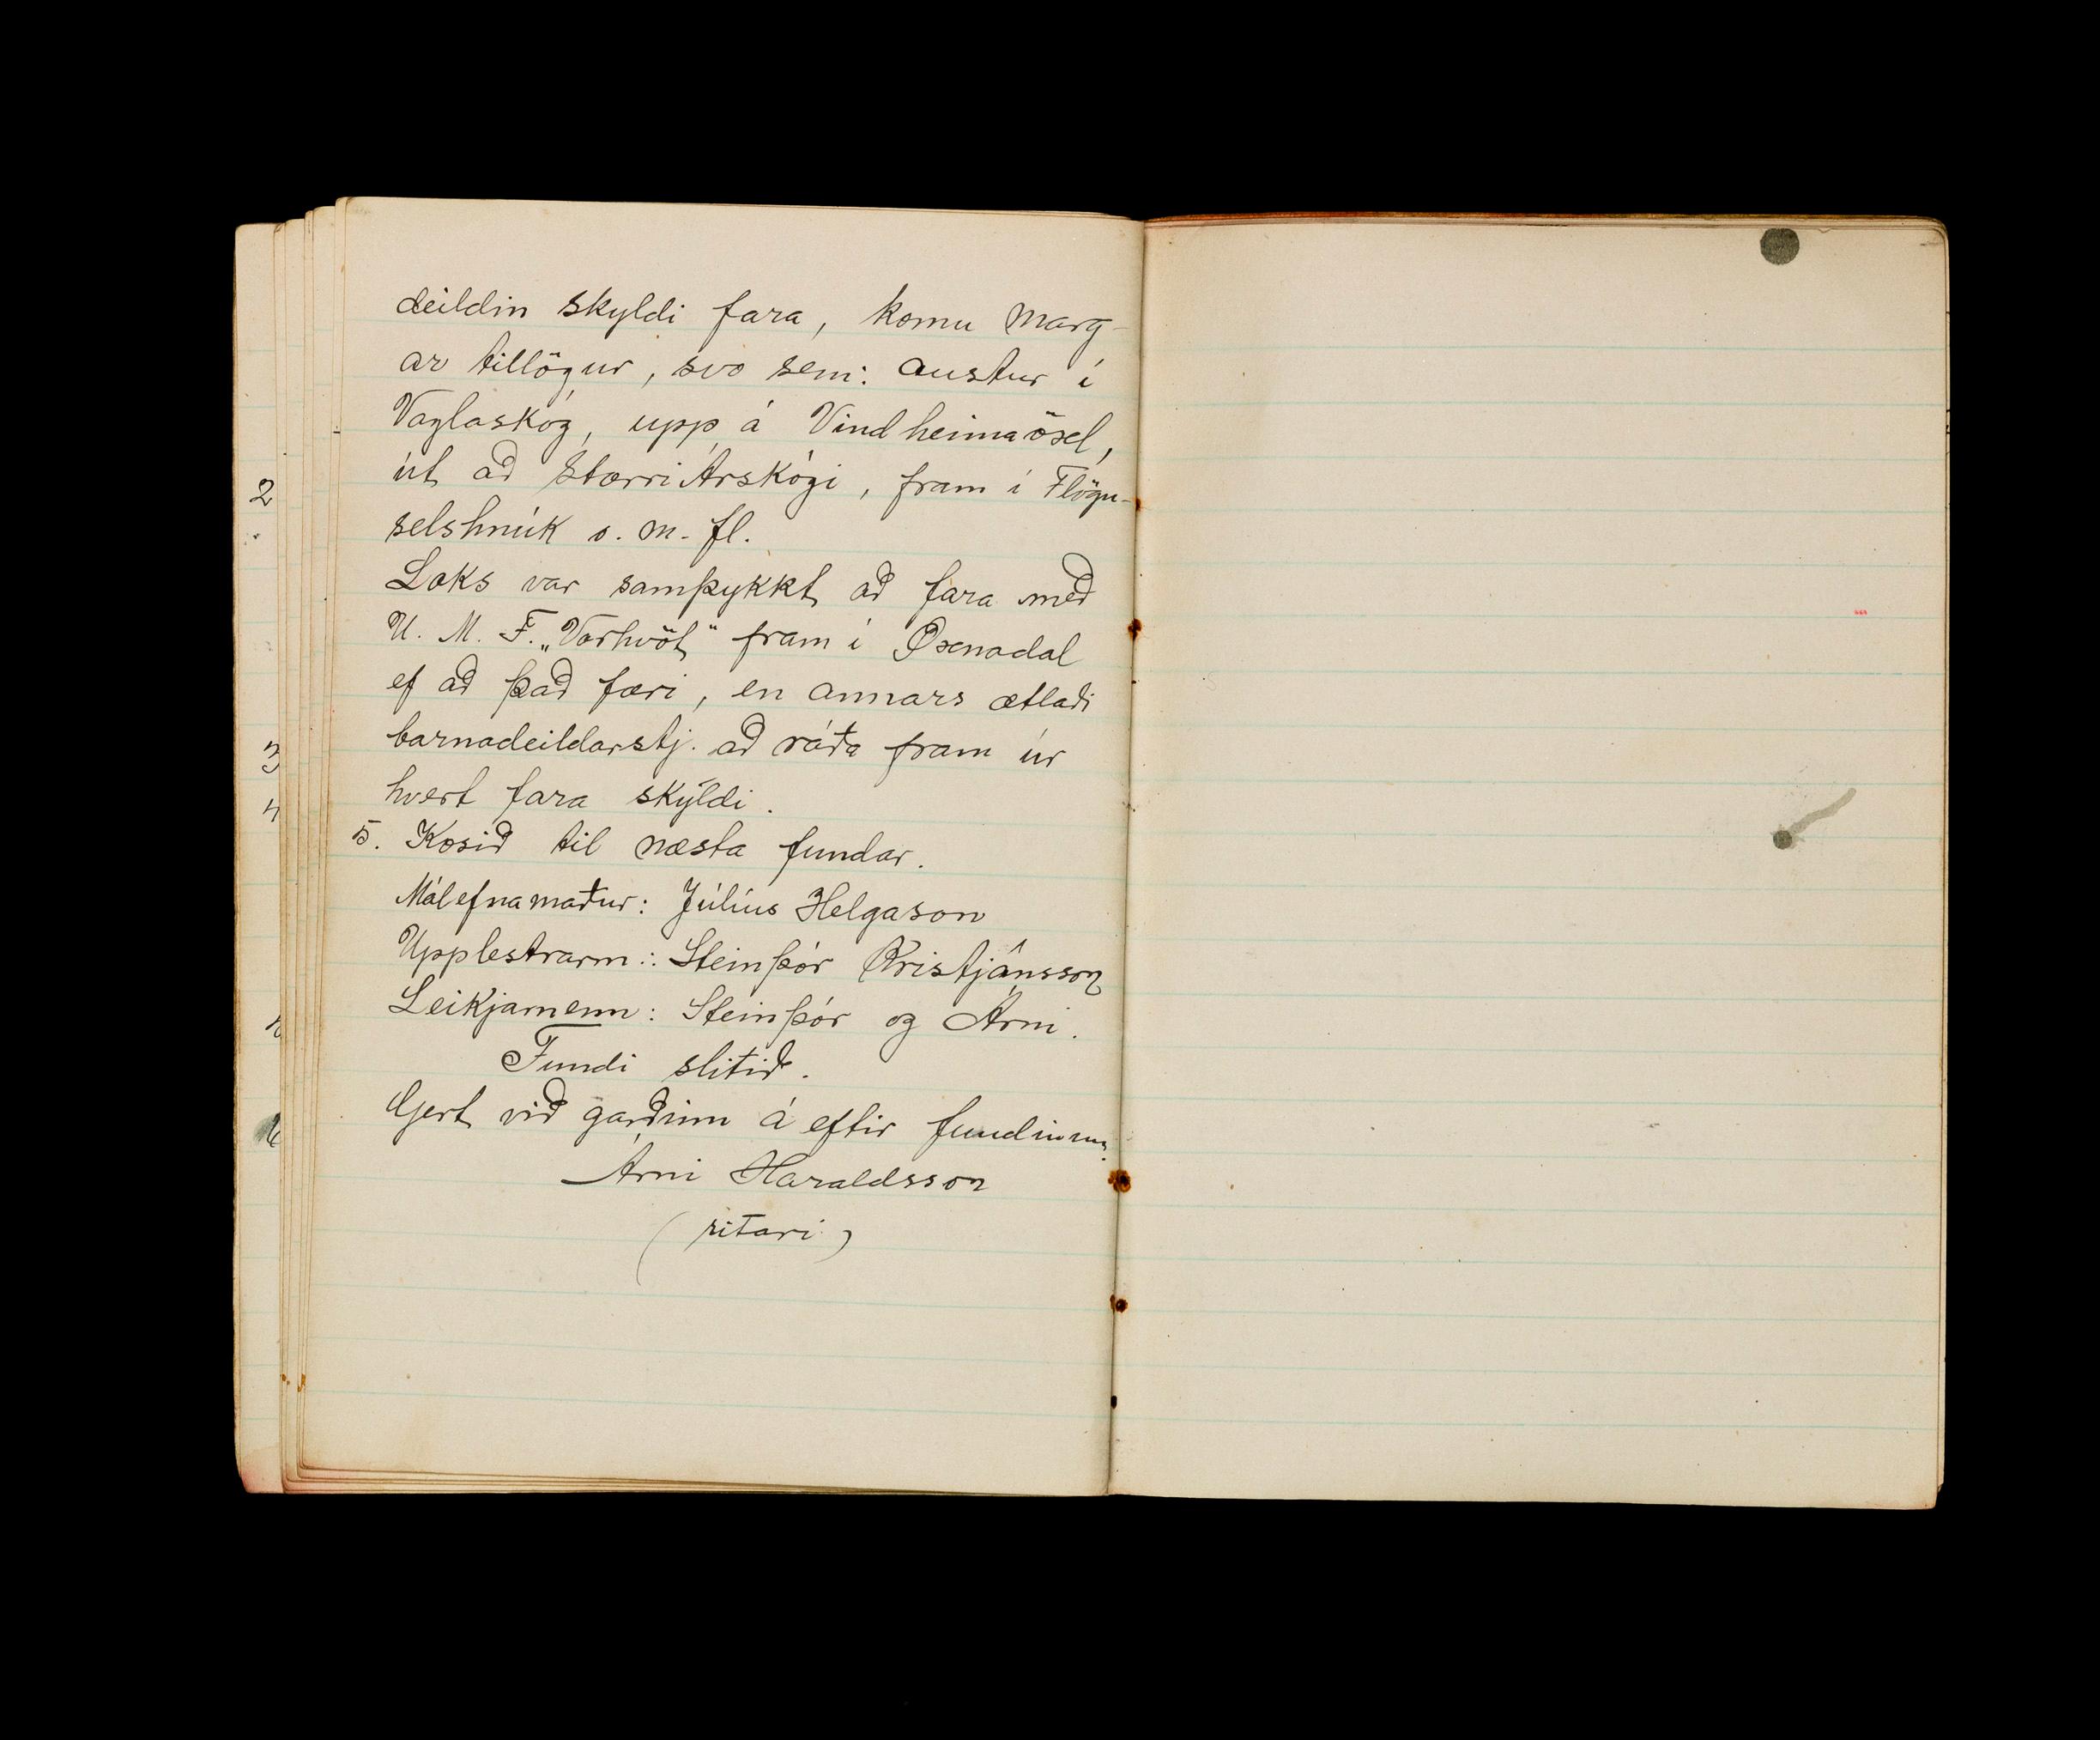 deildin skyldi fara, komu marg-
ar tillögur, svo sem: austur í
Vaglaskóg, upp á Vindheimaöxl,
út að Stærri Árskógi, fram í Flögu-
selshnúk o. m. fl.
Loks var samþykkt að fara með
U. M. F. „Vorhvöt" fram í Öxnadal
ef að það færi, en annars ætlaði
barnadeildarstj. að ráða fram úr
hvert fara skyldi.
5. Kosið til næsta fundar.
Málefnamaður: Júlíus Helgason
Upplestrarm.: Steinþór Kristjánsson
Leikjamenn: Steinþór og Árni.
Fundi slitið.
Gert við garðinn á eftir fundinum.
Árni Haraldsson
(ritari)
2
3
4